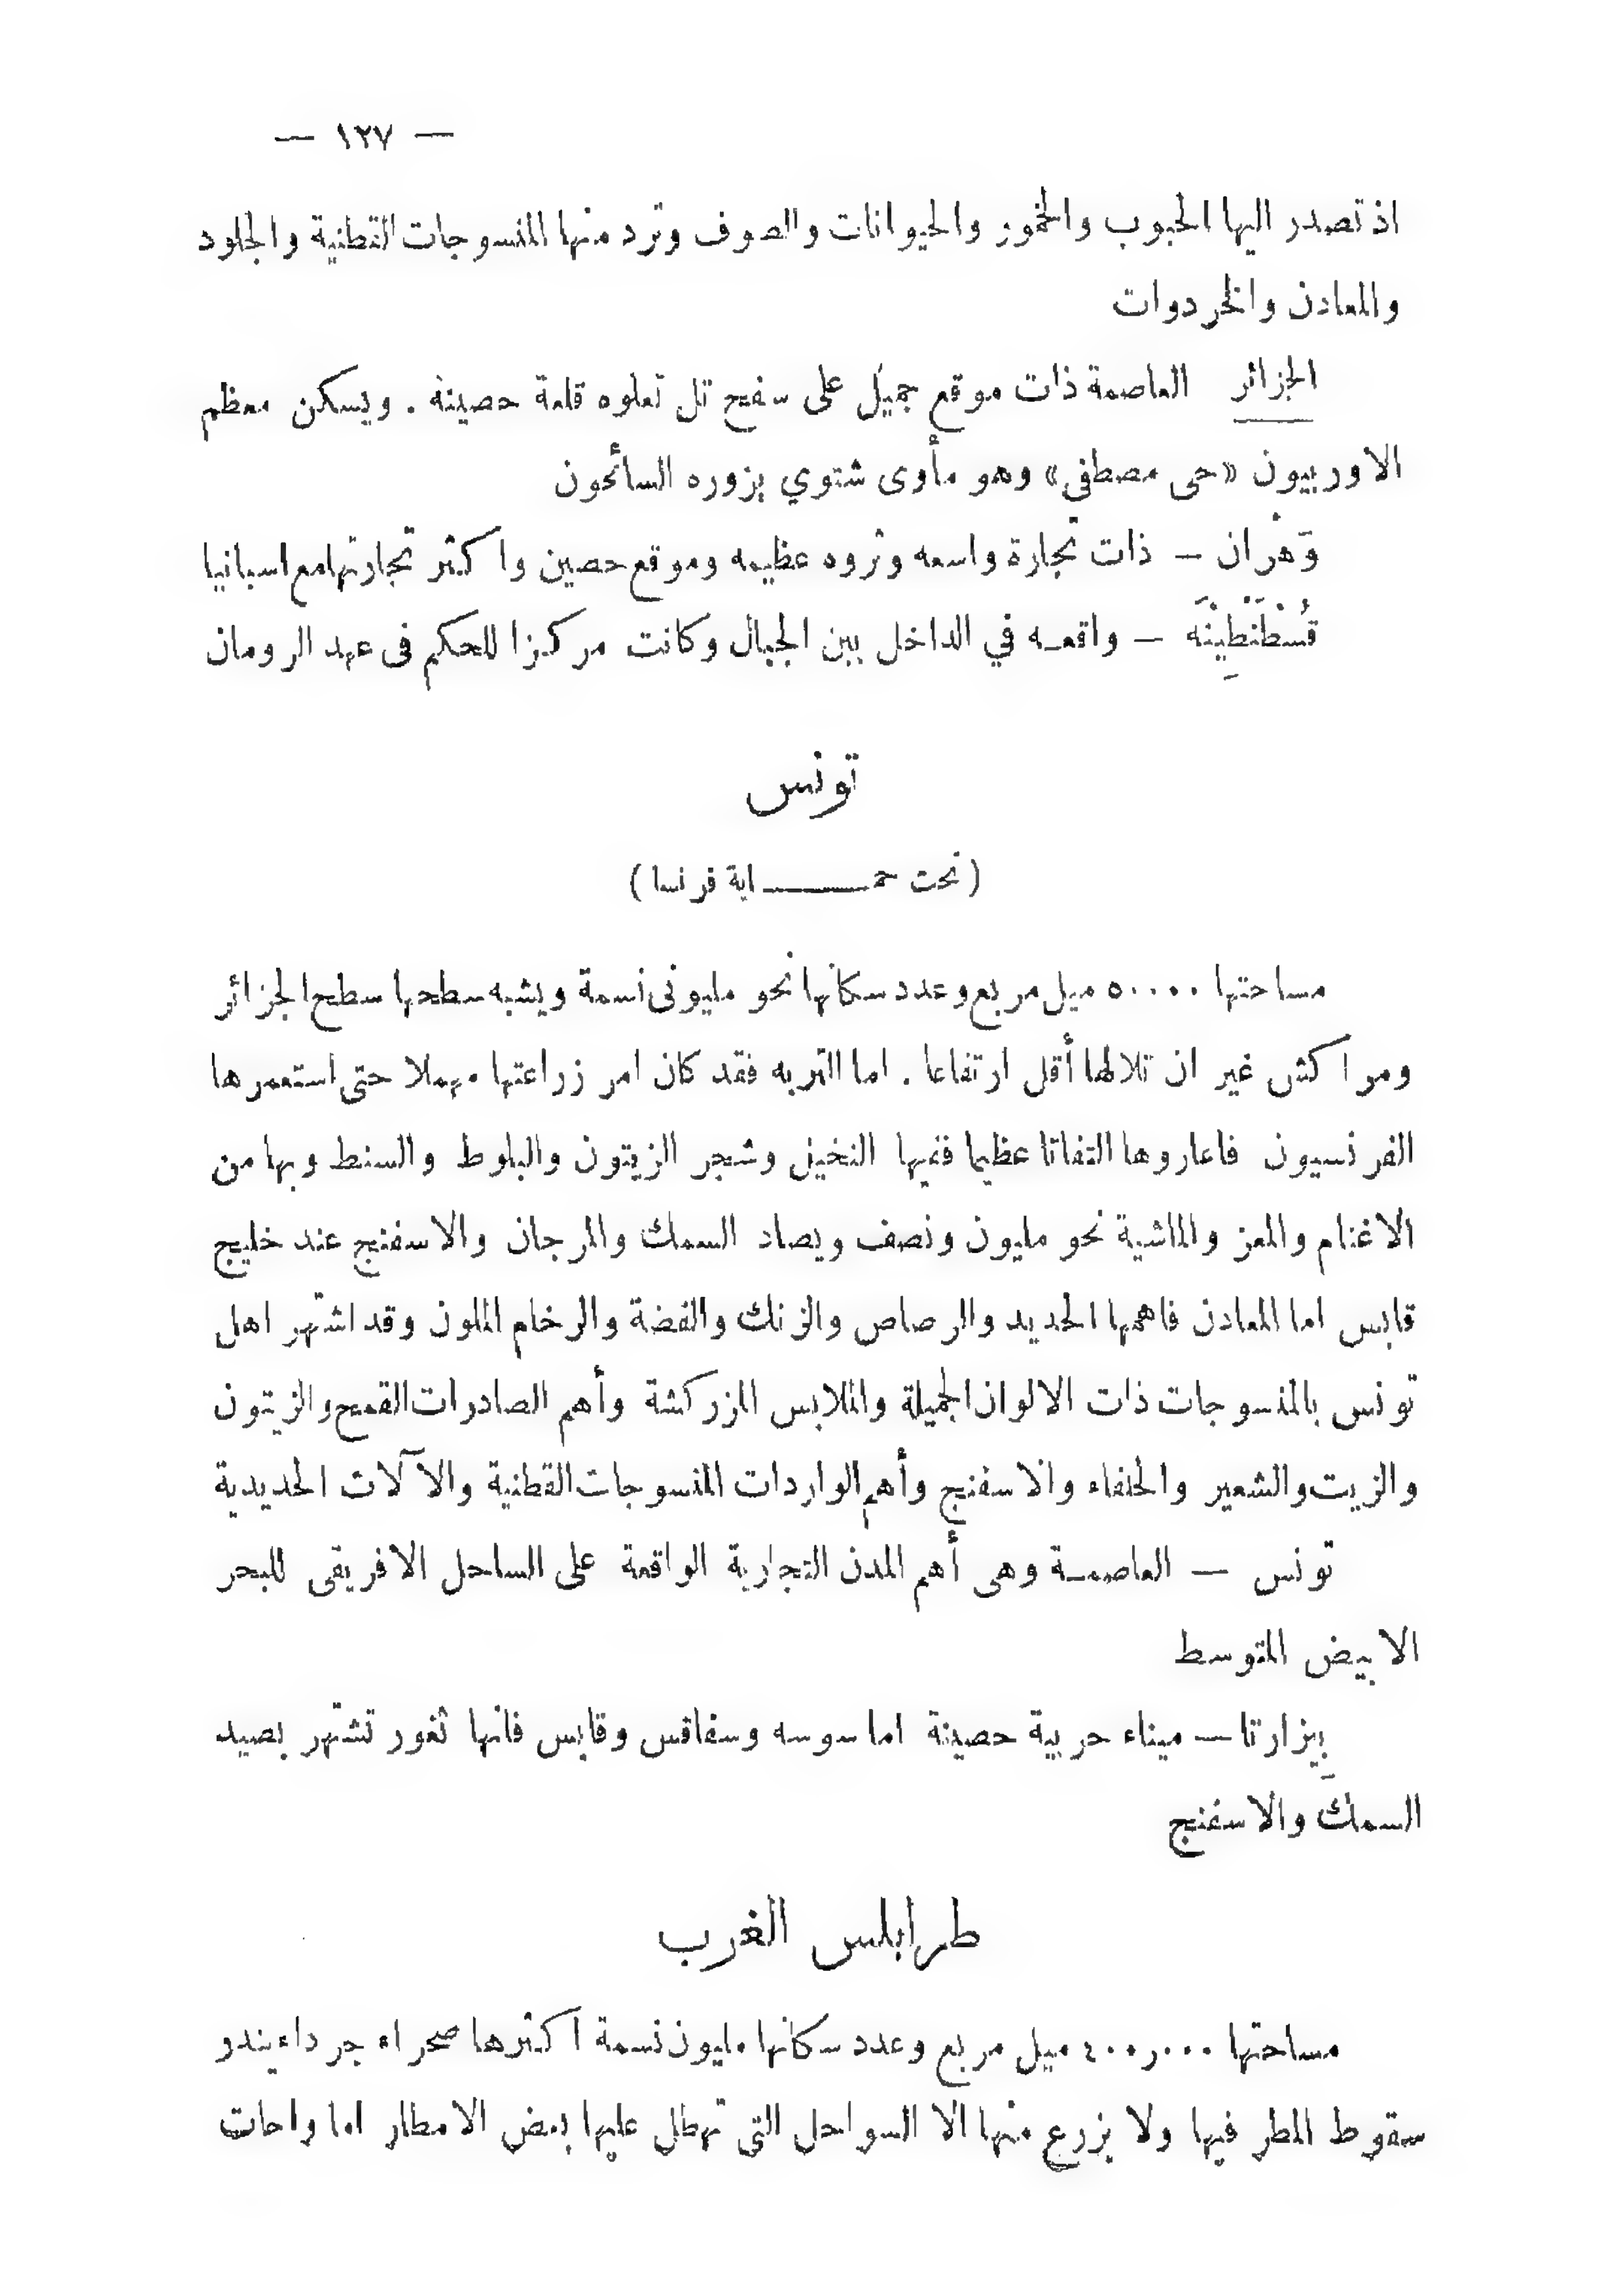 — ١٢٧ —
اذ تصدر اليها الحبوب والخمور والحيوانات والصوف وترد منها المنسوجات القطنية والجلود
والمعادن والخردوات
الجزائر العاصمة ذات موقع جميل على سفح تل تعلوه قلعة حصينة . ويسكن معظم
الاوربيون «حى مصطفى» وهو مأوى شتوي يزوره السائحون
وَهْران — ذات تجارة واسعه وثروه عظيمه وموقع حصين واكثر تجارتها مع اسبانيا
قُسْطَنْطِيْنَه — واقعه في الداخل بين الجبال وكانت مركزا للحكم فى عهد الرومان
تونس
(تحت حمـــاية فرنسا)
مساحتها ٥٠٠٠٠ ميل مربع وعدد سكانها نحو مليونى نسمة ويشبه سطحها سطح الجزائر
ومراكش غير ان تلالها أقل ارتفاعا . اما التربه فقد كان امر زراعتها مهملا حتى استعمرها
الفرنسيون فاعاروها التفاتا عظيما ففيها النخيل وشجر الزيتون والبلوط والسنط وبها من
الاغنام والمعز والماشية نحو مليون ونصف ويصاد السمك والمرجان والاسفنج عند خليج
قابس اما المعادن فاهمها الحديد والرصاص والزنك والفضة والرخام الملون وقد اشتهر اهل
تونس بالمنسوجات ذات الالوان الجميلة والملابس المزركشة وأهم الصادرات القمح والزيتون
والزيت والشعير والحلفاء والاسفنج وأهم الواردات المنسوجات القطنية والآلات الحديدية
تونس — العاصمة وهى أهم المدن التجارية الواقعة على الساحل الافريقى للبحر
الابيض المتوسط
بِيزارتا — ميناء حربية حصينة اما سوسه وسفاقس وقابس فانها ثغور تشتهر بصيد
السمك والاسفنج
طرابلس الغرب
مساحتها ٤٠٠ر٠٠٠ ميل مربع وعدد سكانها مليون نسمة اكثرها صحراء جرداء يندو
سقوط المطر فيها ولا يزرع منها الا السواحل التى تهطل عليها بعض الامطار اما واحات